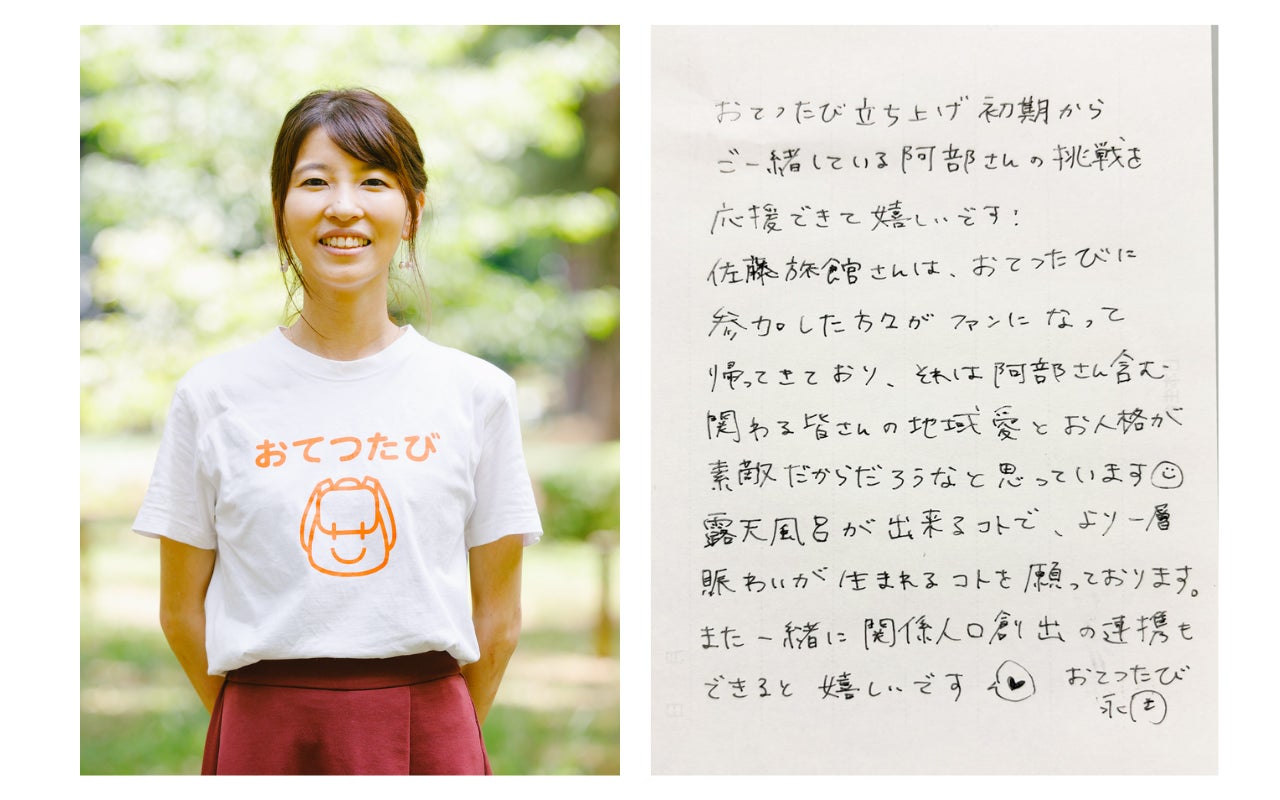 おてつたび
おてつたび立ち上げ初期から
ご一緒している阿部さんの挑戦を
応援できて嬉しいです!
佐藤旅館さんは、おてつたびに
参加した方々がファンになって
帰ってきており、それは阿部さん含む
関わる皆さんの地域愛とお人格が
素敵だからだろうなと思っています
露天風呂が出来るコトで、より一層
賑わいが生まれるコトを願っております。
また一緒に関係人口創出の連携も
できると嬉しいです
おてつたび
永岡